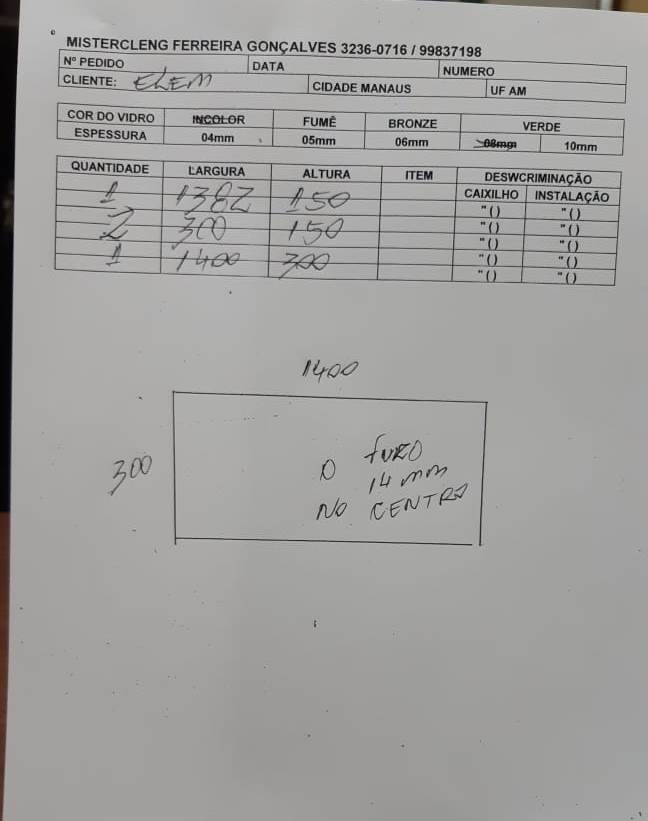 MISTERCLENG FERREIRA GONÇALVES 3236-0716 / 99837198
Nº PEDIDO DATA NUMERO
CLIENTE: ELEM CIDADE MANAUS UF AM
COR DO VIDRO INCOLOR FUMÊ BRONZE VERDE
ESPESSURA 04mm 05mm 06mm 08mm 10mm
QUANTIDADE LARGURA ALTURA ITEM DESWCRIMINAÇÃO
CAIXILHO INSTALAÇÃO
1 1382 150 " ( ) " ( )
2 300 150 " ( ) " ( )
" ( ) " ( )
1 1400 300 " ( ) " ( )
" ( ) " ( )
1400
300
O FURO
14 mm
NO CENTRO